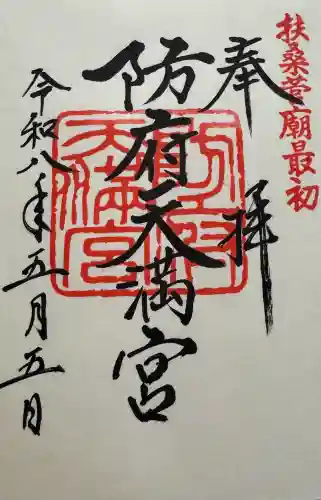 扶桑菅廟最初
奉拝
防府天満宮
令和八年五月五日
防府天満宮